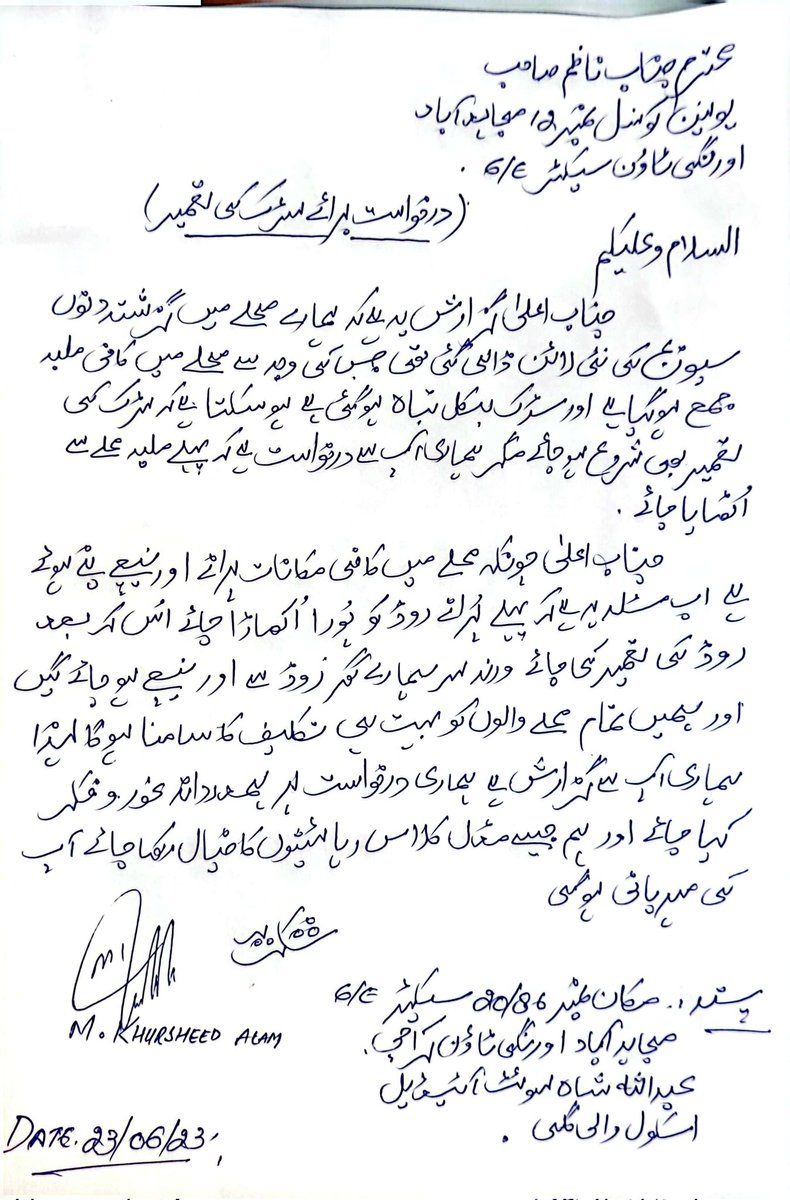 محترم جناب ناظم صاحب
یونین کونسل نمبر 12 مجاہد آباد
اورنگی ٹاؤن سیکٹر G/E .
(درخواست برائے سڑک کی تعمیر)
السلام وعلیکم
جناب اعلیٰ گزارش یہ ہے کہ ہمارے محلے میں گزشتہ دنوں
سیوریج کی نئی لائن ڈالی گئی تھی جس کی وجہ سے محلے میں کافی ملبہ
جمع ہوگیا ہے اور سڑک بلکل تباہ ہوگئی ہے ہو سکتا ہے کہ سڑک کی
تعمیر بھی شروع ہو جائے مگر ہماری آپ سے درخواست ہے کہ پہلے ملبہ محلے سے
اُٹھایا جائے .
جناب اعلیٰ چونکہ محلے میں کافی مکانات پرانے اور نیچے بنے ہوئے
ہے اب مسئلہ یہ ہے کہ پہلے پُرانے روڈ کو پُورا اُکھاڑا جائے اُس کہ بعد
روڈ کی تعمیر کی جائے ورنہ سر ہمارے گھر روڈ سے اور نیچے ہو جائے گیں
اور ہمیں تمام محلے والوں کو بہت ہی تکلیف کا سامنا ہوگا لہذا
ہماری آپ سے گزارش ہے ہماری درخواست پر ہمدردانہ غور و فکر
کیا جائے اور ہم جیسے مڈل کلاس رہائیشوں کا خیال رکھا جائے آپ
کی مہربانی ہوگی
شکریہ
M. KHURSHEED ALAM
پتہ:. مکان نمبر 90/86 سیکٹر G/E
مجاہد آباد اورنگی ٹاؤن کراچی.
عبداللہ شاہ سوئٹ
اسکول والی گلی .
DATE. 23/06/23